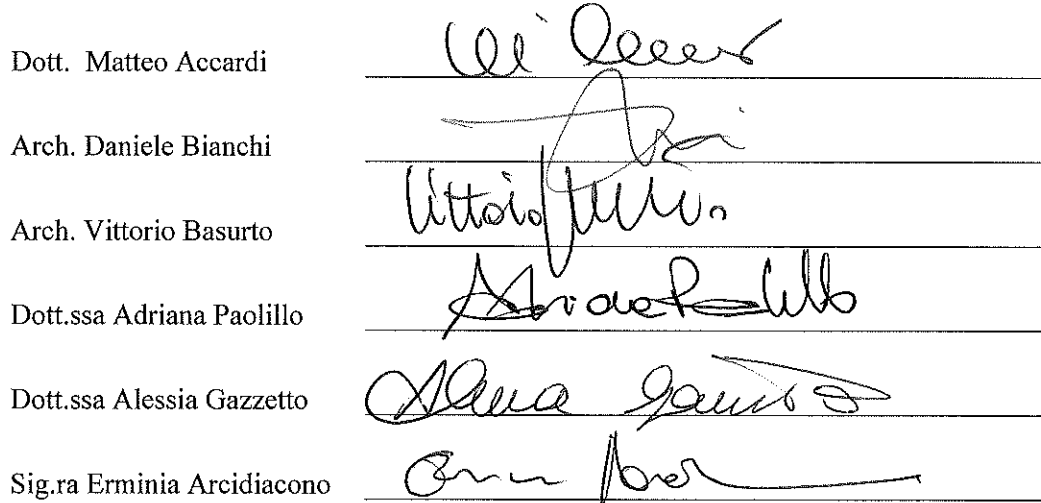 Dott. Matteo Accardi
Arch. Daniele Bianchi
Arch. Vittorio Basurto Vittorio
Dott.ssa Adriana Paolillo Adriana Paolillo
Dott.ssa Alessia Gazzetto
Sig.ra Erminia Arcidiacono